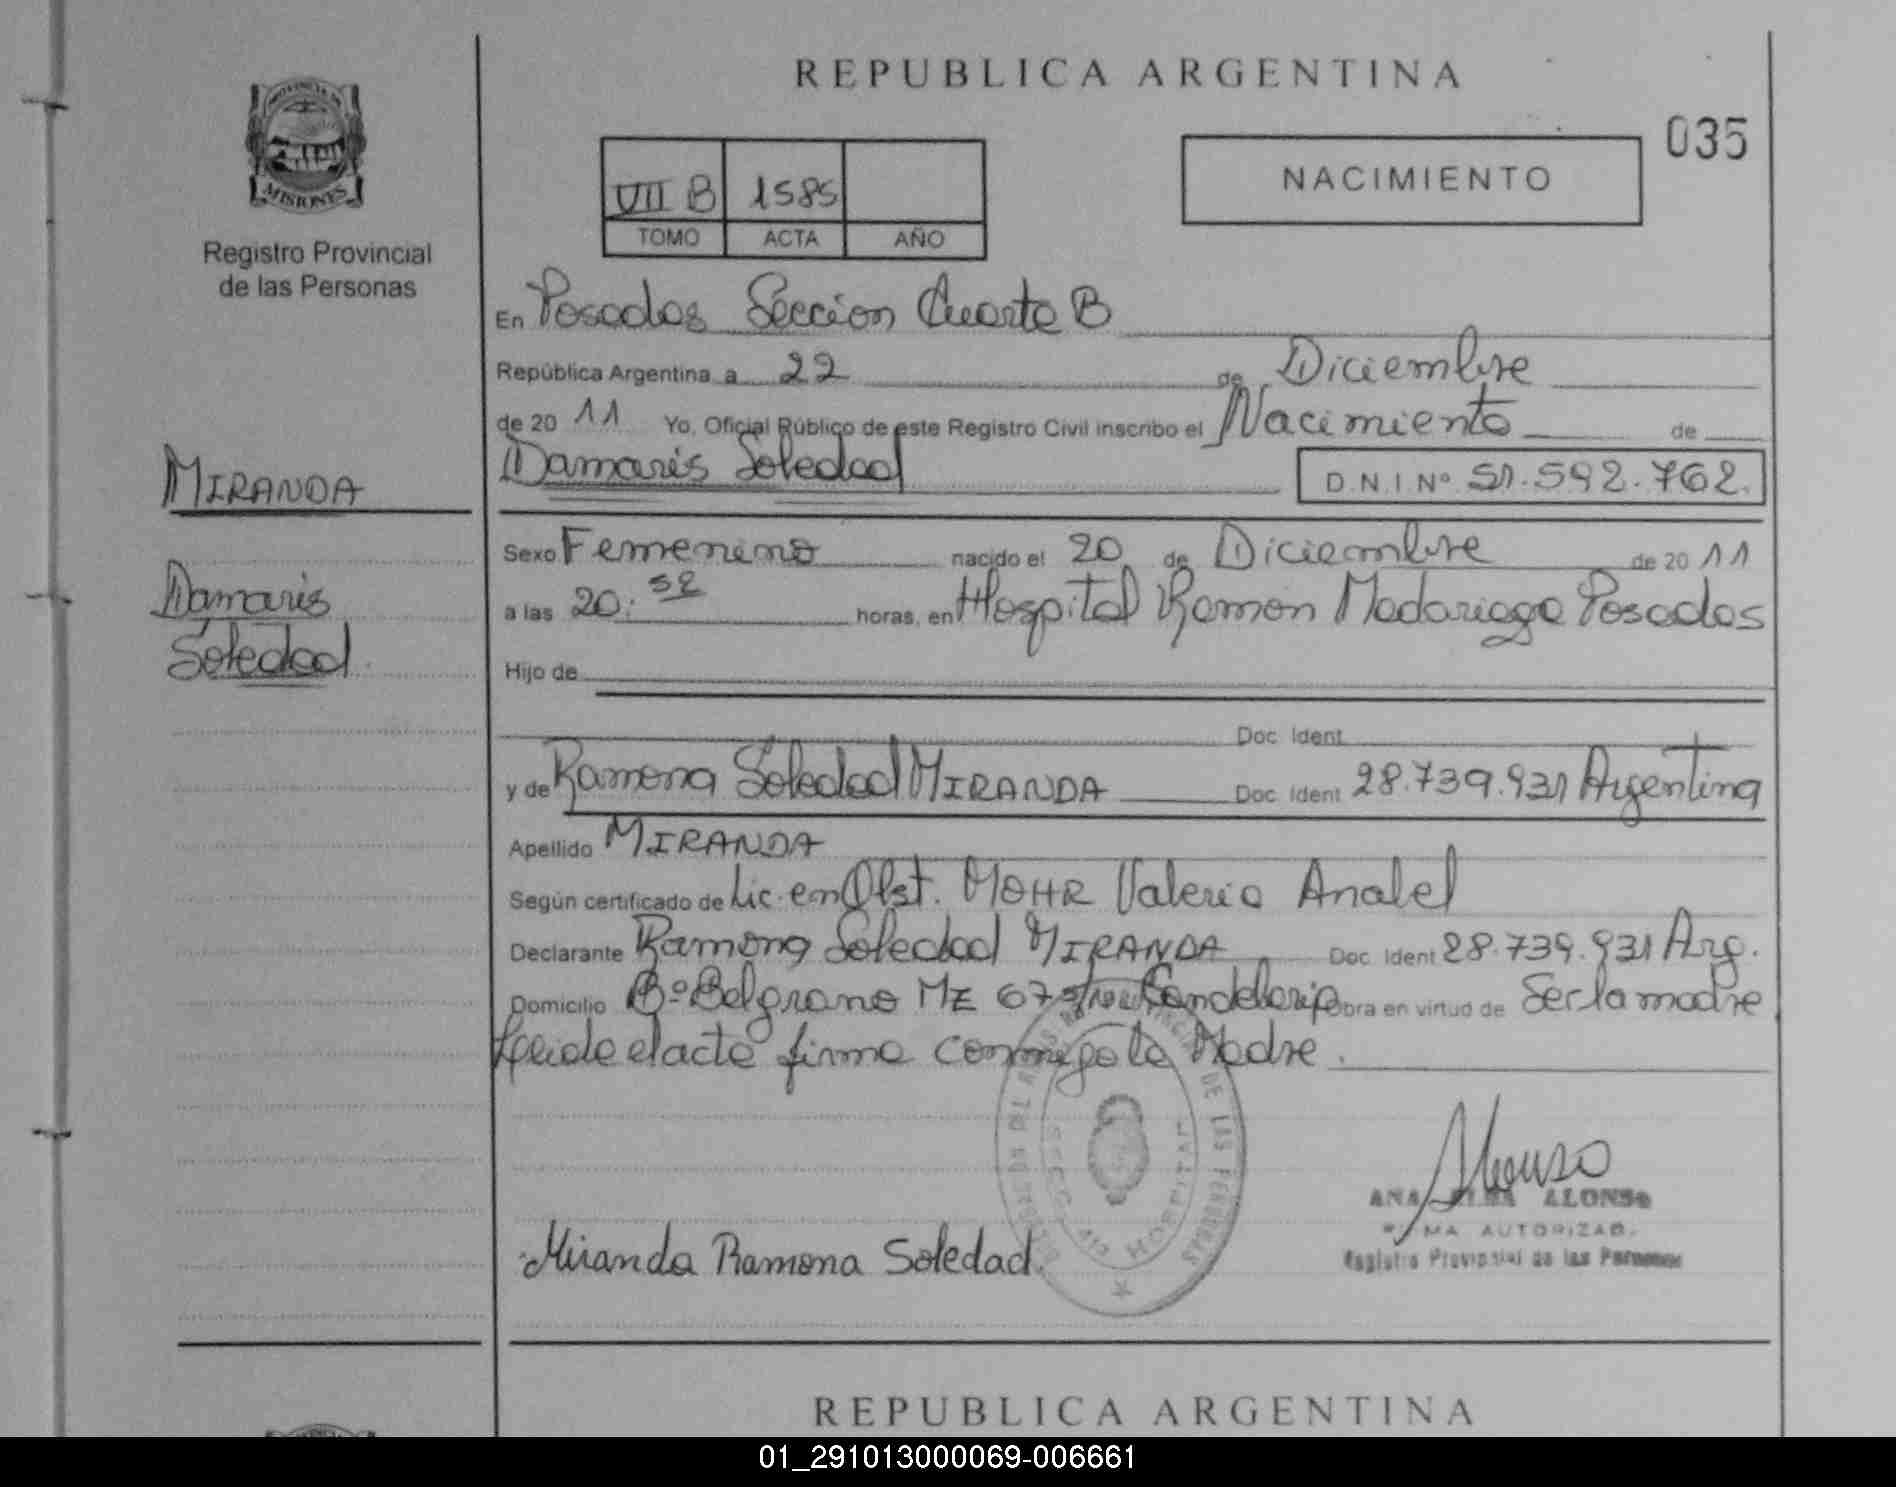 REPUBLICA ARGENTINA
035
NACIMIENTO
VII B 1585
TOMO ACTA AÑO
PROVINCIA DE
MISIONES
Registro Provincial
de las Personas
En Posadas Sección Cuarta B
República Argentina a 22 de Diciembre
de 20 11 Yo, Oficial Público de este Registro Civil inscribo el Nacimiento de
Damaris Soledad D.N.I Nº 51.592.762.
MIRANDA
Damaris
Soledad
Sexo Femenino nacido el 20 de Diciembre de 20 11
a las 20:52 horas, en Hospital Ramón Madariaga Posadas
Hijo de
Doc Ident
y de Ramona Soledad MIRANDA Doc Ident 28.739.931 Argentina
Apellido MIRANDA
Según certificado de Lic. en Obst. MOHR Valeria Anabel
Declarante Ramona Soledad MIRANDA Doc Ident 28.739.931 Arg.
Domicilio Bº Belgrano Mz 67 s/n Candelaria Obra en virtud de Ser la madre
Leida el acta firma conmigo la Madre.
DE LAS PERSONAS
HOSPITAL
Alonso
ANA ALONSO
FIRMA AUTORIZAD.
Registro Provincial de las Personas
Miranda Ramona Soledad
REPUBLICA ARGENTINA
01_291013000069-006661